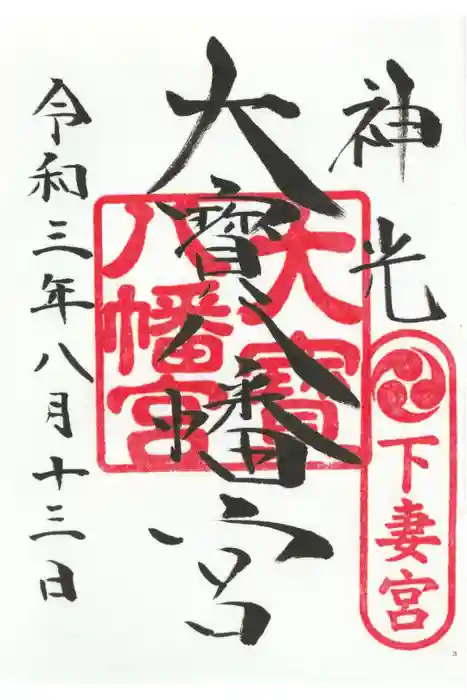 神光
下妻宮
大寳八幡宮
大寳八幡宮
令和三年八月十三日